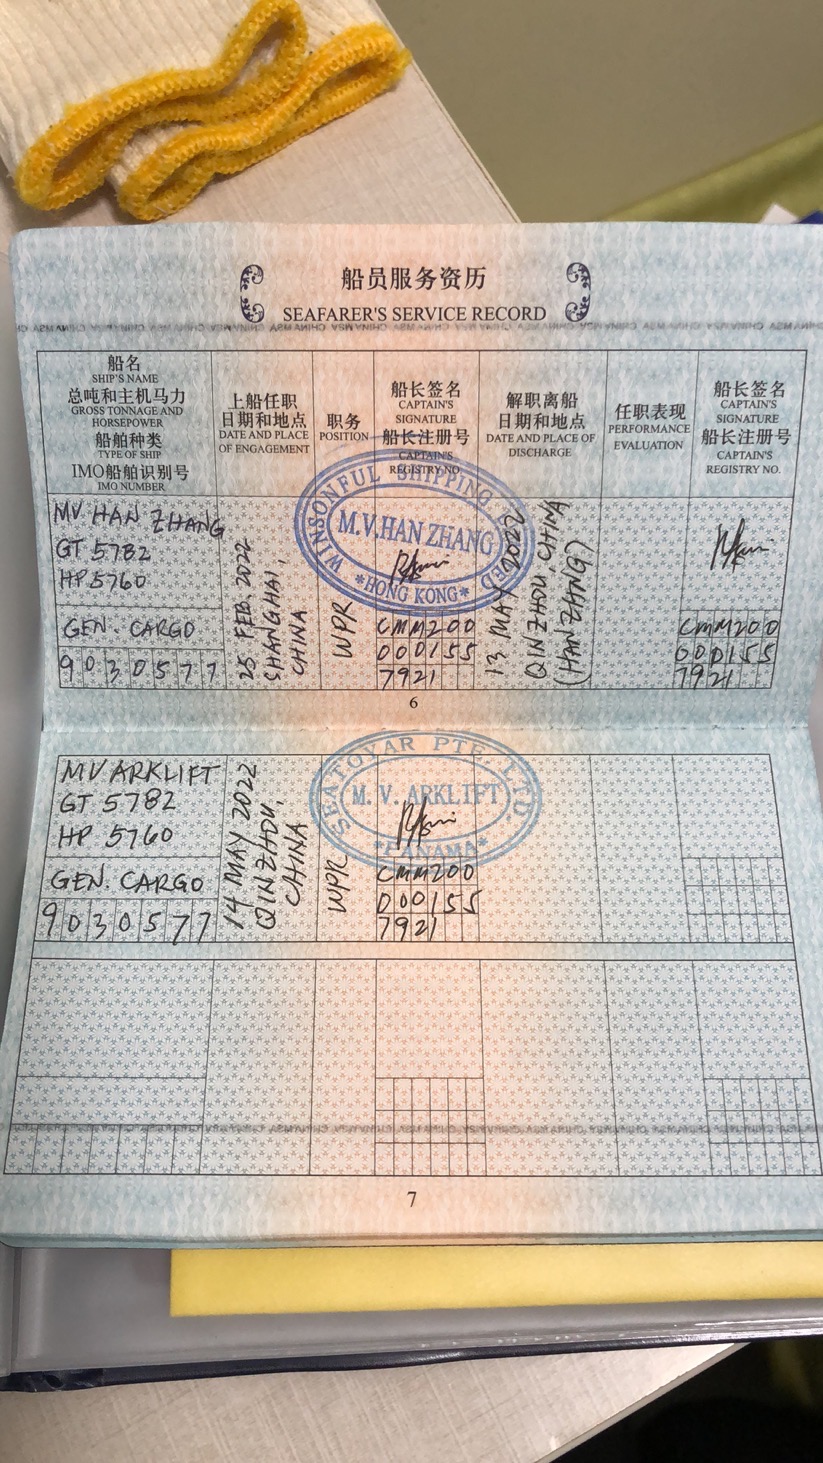 船员服务资历
SEAFARER'S SERVICE RECORD
船名
SHIP'S NAME
总吨和主机马力
GROSS TONNAGE AND
HORSEPOWER
船舶种类
TYPE OF SHIP
IMO船舶识别号
IMO NUMBER
上船任职
日期和地点
DATE AND PLACE
OF ENGAGEMENT
职务
POSITION
船长签名
CAPTAIN'S
SIGNATURE
船长注册号
CAPTAIN'S
REGISTRY NO.
解职离船
日期和地点
DATE AND PLACE OF
DISCHARGE
任职表现
PERFORMANCE
EVALUATION
船长签名
CAPTAIN'S
SIGNATURE
船长注册号
CAPTAIN'S
REGISTRY NO.
MV HAN ZHANG
GT 5782
HP 5760
GEN. CARGO
9030577
25 FEB. 2022
SHANGHAI,
CHINA
WPR
WINSONFUL SHIPPING
M.V.HAN ZHANG
*HONG KONG*
CMM200
000155
7921
13 MAY 2022
QINZHOU, CHINA
(HAN ZHANG)
CMM200
000155
7921
6
MV ARKLIFT
GT 5782
HP 5760
GEN. CARGO
9030577
14 MAY 2022
QINZHOU,
CHINA
WPR
SEATOYAR PTE. LTD.
M. V. ARKLIFT
*PANAMA*
CMM200
000155
7921
7